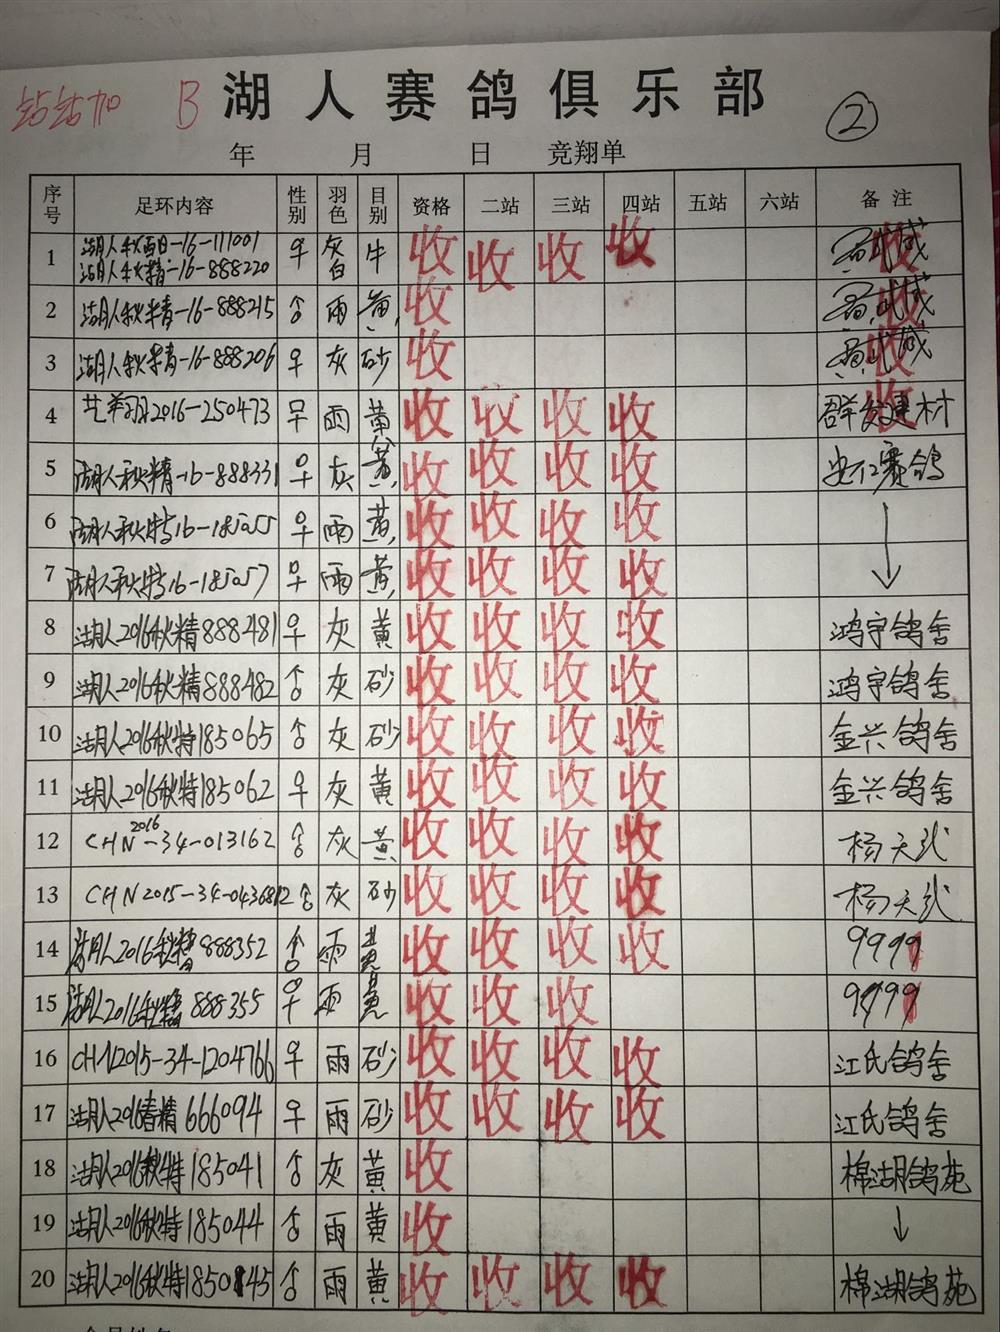 站站加 B 湖人赛鸽俱乐部 ②
年 月 日 竞翔单
序号 足环内容 性别 羽色 目别 资格 二站 三站 四站 五站 六站 备注
1 湖人秋 -16-111001
湖人秋精-16-888220 ♀ 灰白 牛 收 收 收 收 收
2 湖人秋精-16-888215 ♂ 雨 黄 收 收
3 湖人秋精-16-888206 ♀ 灰 砂 收 收
4 2016-250473 ♀ 雨 黄 收 收 收 收 群 建材 收
5 湖人秋精-16-888331 ♀ 灰 黄 收 收 收 收 赛鸽
6 湖人秋特16-185055 ♀ 雨 黄 收 收 收 收 ↓
7 湖人秋特16-185057 ♀ 雨 黄 收 收 收 收
8 湖人2016秋精888481 ♀ 灰 黄 收 收 收 收 鸿宇鸽舍
9 湖人2016秋精888482 ♂ 灰 砂 收 收 收 收 鸿宇鸽舍
10 湖人2016秋特185065 ♂ 灰 砂 收 收 收 收 金兴鸽舍
11 湖人2016秋特185062 ♀ 灰 黄 收 收 收 收 金兴鸽舍
12 CHN2016-34-013162 ♂ 灰 黄 收 收 收 收 杨天
13 CHN2015-34-0436812 ♂ 灰 砂 收 收 收 收 杨天
14 湖人2016秋精888352 ♂ 雨 黄 收 收 收 收 9999
15 湖人2016秋精888355 ♀ 雨 黄 收 收 收 9999
16 CHN2015-34-1204766 ♀ 雨 砂 收 收 收 收 江氏鸽舍
17 湖人2016春精666094 ♀ 雨 砂 收 收 收 收 江氏鸽舍
18 湖人2016秋特185041 ♂ 灰 黄 收 棉湖鸽苑
19 湖人2016秋特185044 ♂ 雨 黄 收 ↓
20 湖人2016秋特185045 ♂ 雨 黄 收 收 收 收 棉湖鸽苑